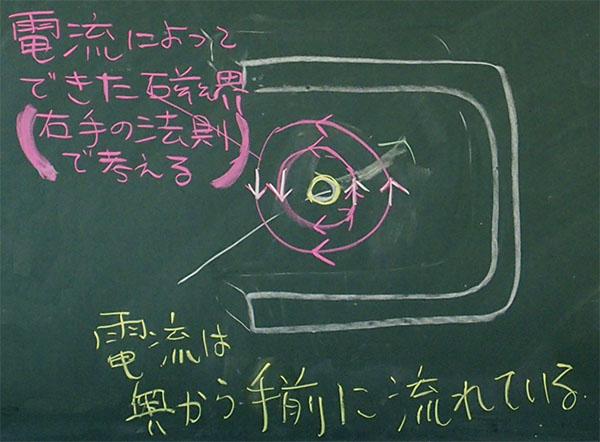 電流によって
できた磁界
(右手の法則
で考える)
電流は
奥から手前に流れている.